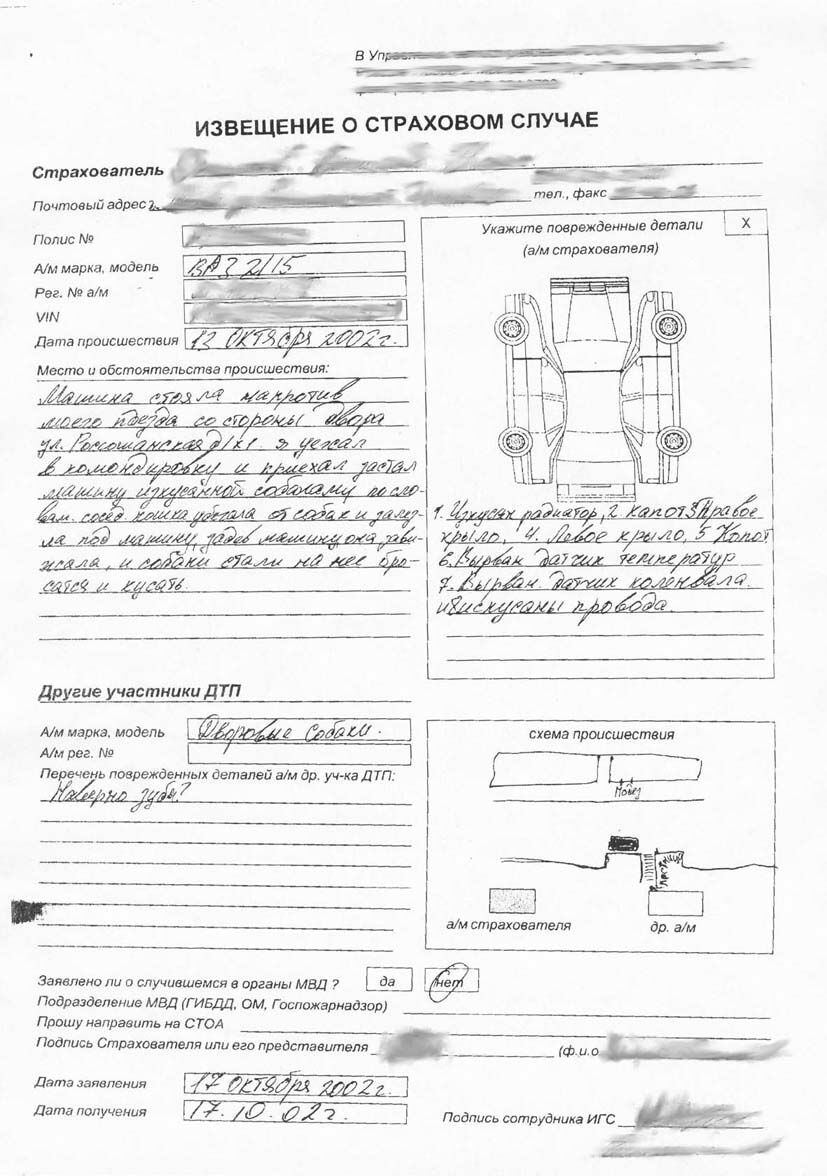 В Управ
ИЗВЕЩЕНИЕ О СТРАХОВОМ СЛУЧАЕ
Страхователь
Почтовый адрес
тел., факс
Полис №
А/м марка, модель ВАЗ 2115
Рег. № а/м
VIN
Дата происшествия 12 октября 2002г.
Место и обстоятельства происшествия:
Машина стояла напротив
моего пдезда со стороны двора
ул. Россошанская д1к1. я уезжал
в комондировку и приехал застал
машину изкусанной собаками по сло-
вам. сосед кошка убегала от собак и залез-
ла под машину, задев машину она зави-
жала, и собаки стали на нее бро-
сатся и кусать.
Укажите поврежденные детали X
(а/м страхователя)
1. Изкусан радиатор, 2 капот 3 Правое
крыло, 4. Левое крыло, 5 Капот
6. Вырван датчик температур
7. Вырван. датчик коленвала.
и 8 искусаны провода.
Другие участники ДТП
А/м марка, модель Дворовые собаки.
А/м рег. №
Перечень поврежденных деталей а/м др. уч-ка ДТП:
Наверно зубы?
схема происшествия
а/м страхователя
др. а/м
Заявлено ли о случившемся в органы МВД ? да нет
Подразделение МВД (ГИБДД, ОМ, Госпожарнадзор)
Прошу направить на СТОА
Подпись Страхователя или его представителя (ф.и.о
Дата заявления 17 октября 2002г.
Дата получения 17.10.02г.
Подпись сотрудника ИГС